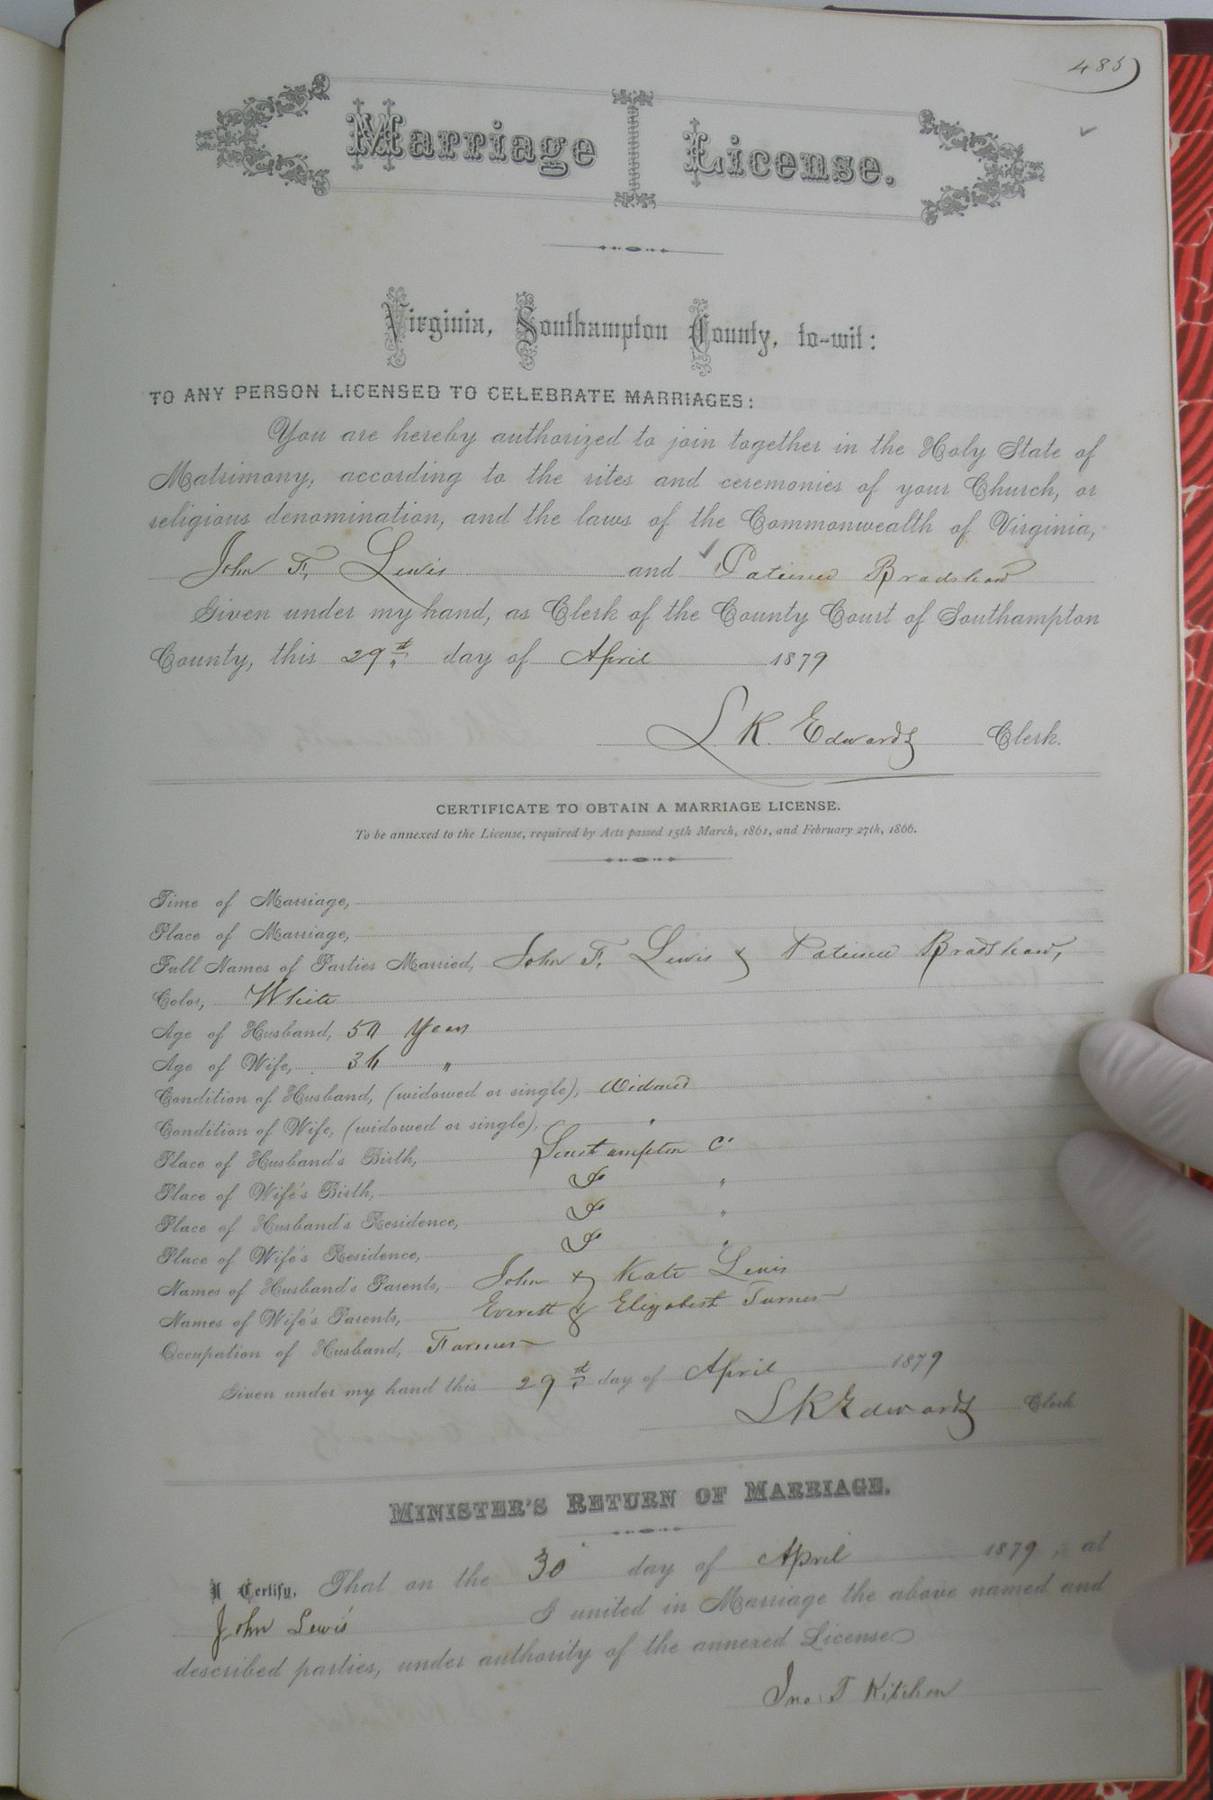 485
Marriage License.
Virginia, Southampton County, to-wit:
TO ANY PERSON LICENSED TO CELEBRATE MARRIAGES:
You are hereby authorized to join together in the Holy State of
Matrimony, according to the rites and ceremonies of your Church, or
religious denomination, and the laws of the Commonwealth of Virginia,
John F. Lewis and Patience Bradshaw
Given under my hand, as Clerk of the County Court of Southampton
County, this 29th day of April 1879
L R Edwards Clerk.
CERTIFICATE TO OBTAIN A MARRIAGE LICENSE.
To be annexed to the License, required by Acts passed 15th March, 1861, and February 27th, 1866.
Time of Marriage,
Place of Marriage,
Full Names of Parties Married, John F. Lewis & Patience Bradshaw,
Color, White
Age of Husband, Years
Age of Wife, 36 "
Condition of Husband, (widowed or single), Widowed
Condition of Wife, (widowed or single), "
Place of Husband's Birth, Southampton Co
Place of Wife's Birth, "
Place of Husband's Residence, "
Place of Wife's Residence, "
Names of Husband's Parents, John & Kate Lewis
Names of Wife's Parents, Everett & Elizabeth Turner
Occupation of Husband, Farmer
Given under my hand this 29th day of April 1879
L R Edwards Clerk
MINISTER'S RETURN OF MARRIAGE.
I Certify, That on the 30 day of April 1879, at
John Lewis' I united in Marriage the above named and
described parties, under authority of the annexed License
Jno. T Kitchen